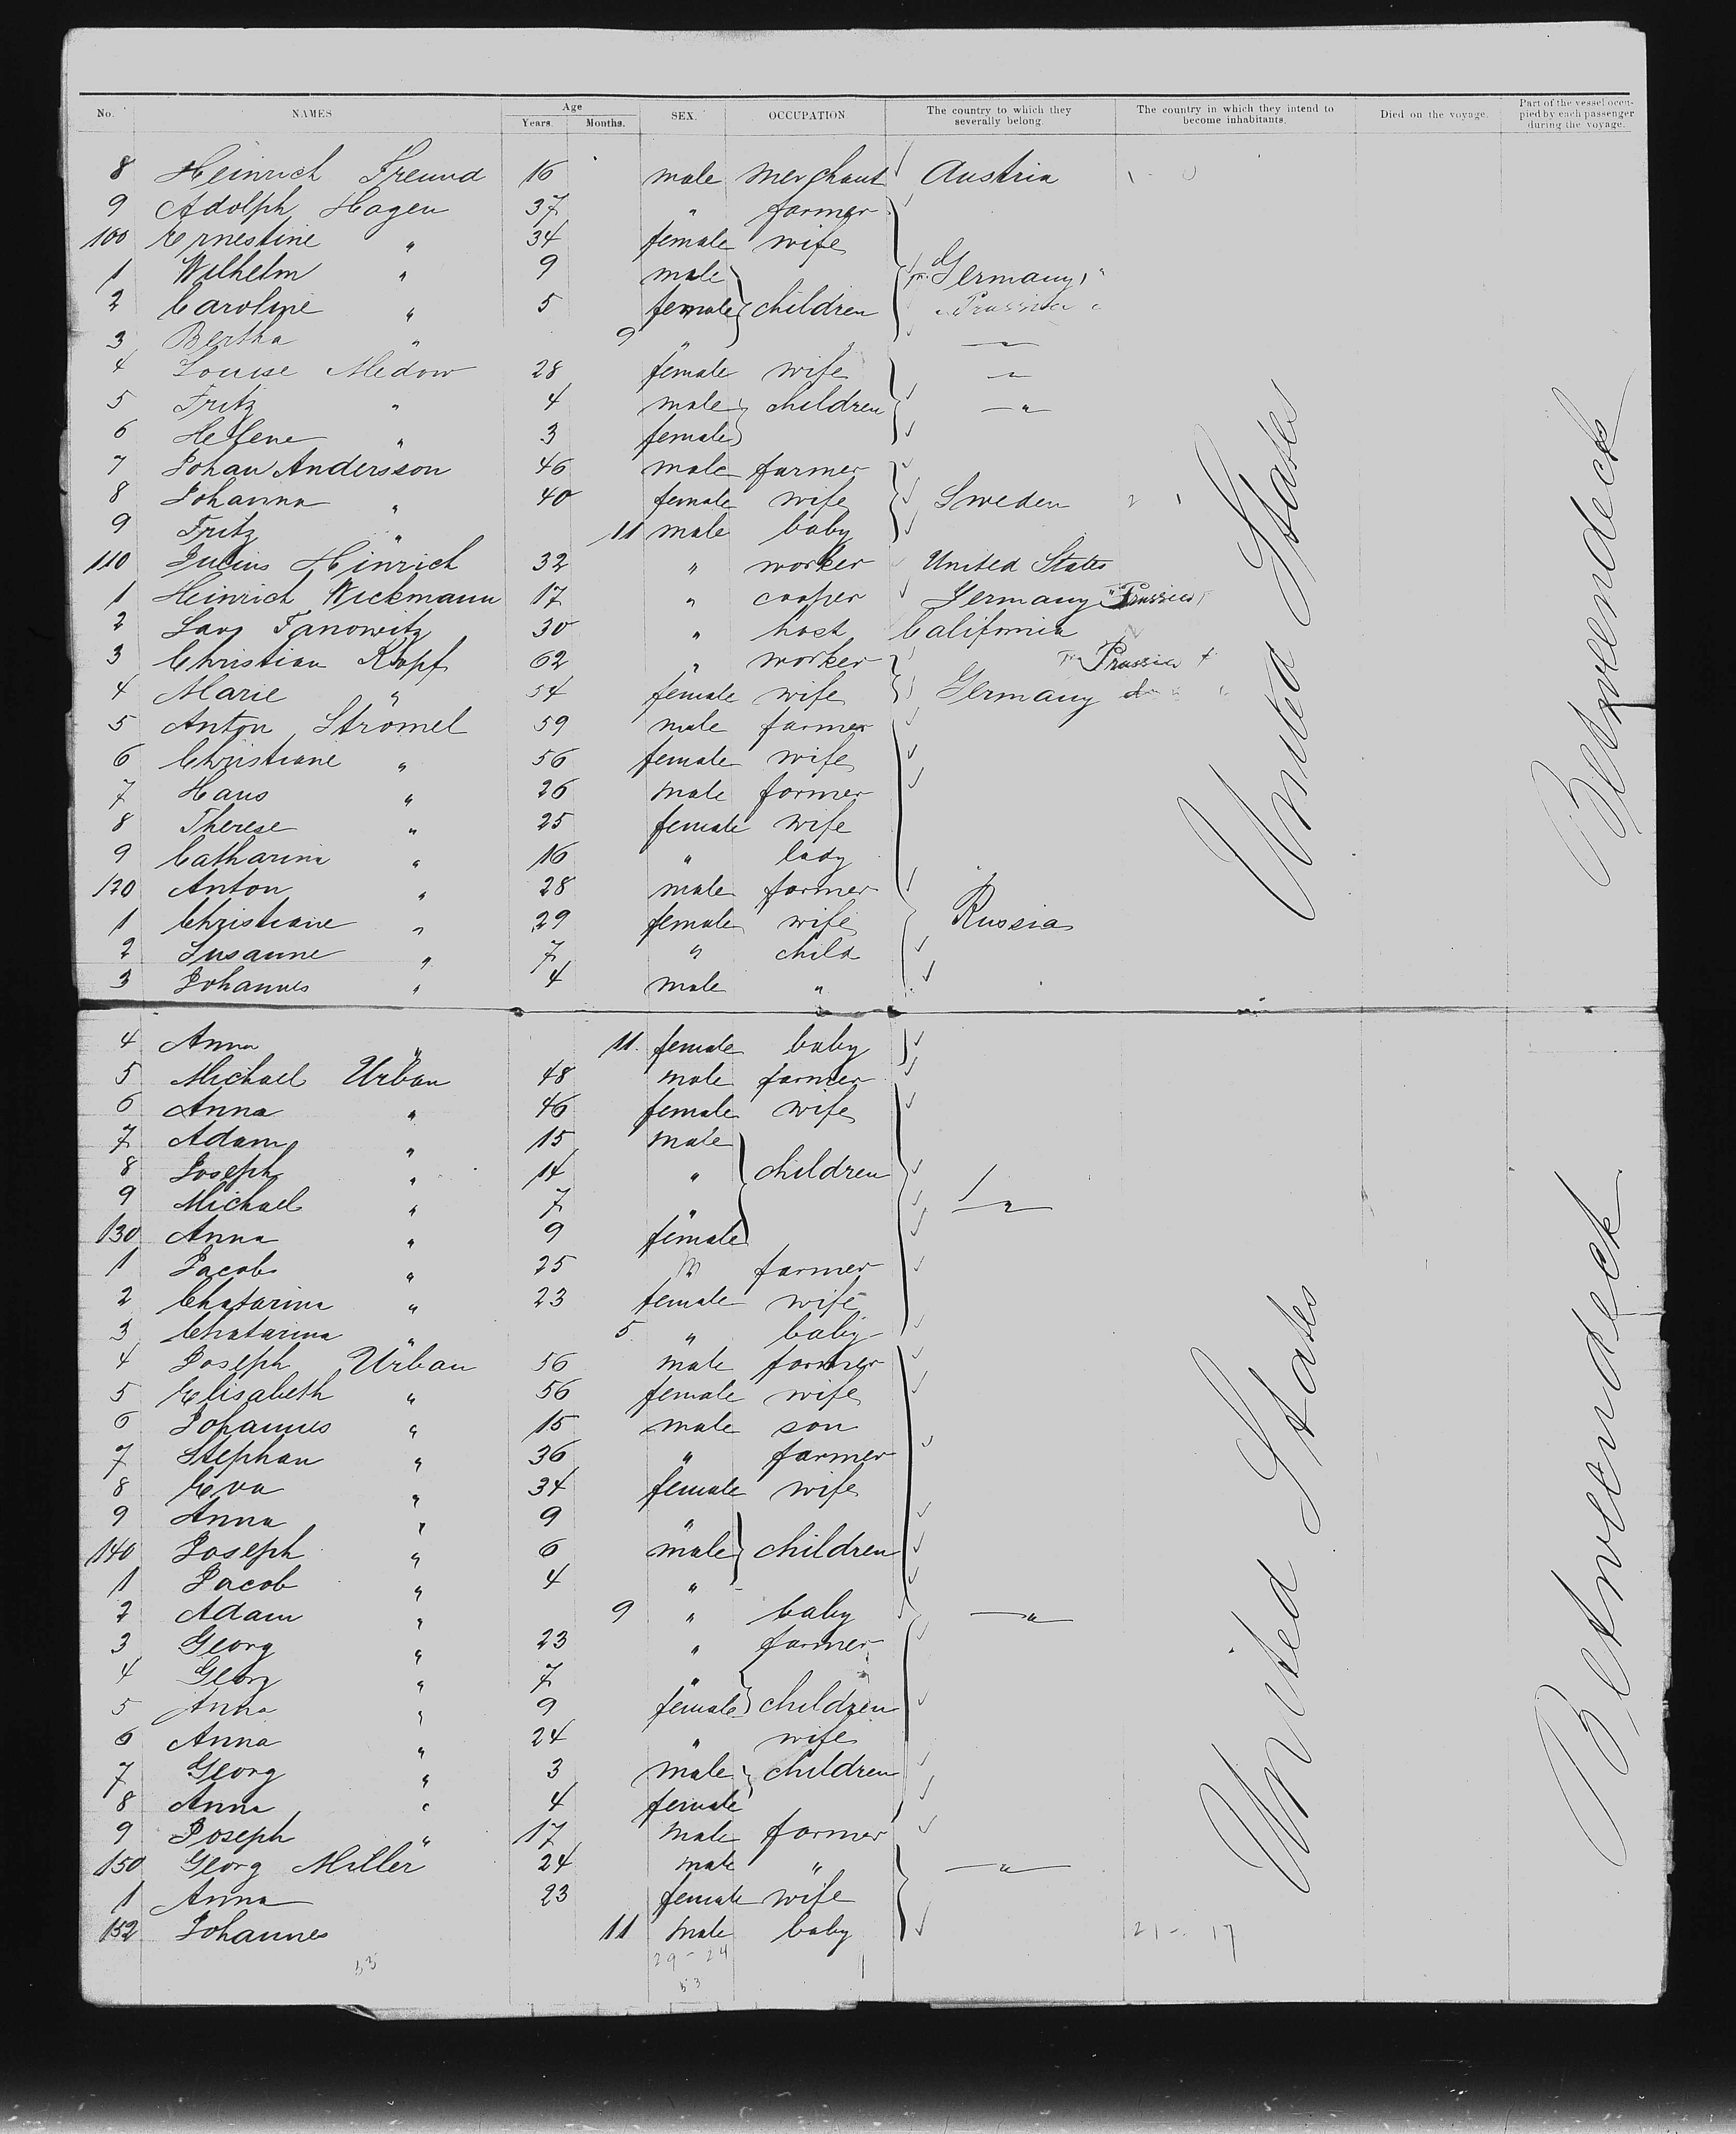 No. NAMES Age Years. Months. SEX. OCCUPATION The country to which they severally belong. The country in which they intend to become inhabitants. Died on the voyage. Part of the vessel occupied by each passenger during the voyage.
8 Heinrich Freund 16 male merchant Austria
9 Adolph Hagen 37 " farmer
100 Ernestine " 34 female wife
1 Wilhelm " 9 male Germany
2 Caroline " 5 female children Prussia
3 Bertha " 9 "
4 Louise Medow 28 female wife "
5 Fritz " 4 male children "
6 Helene " 3 female
7 Johan Andersson 46 male farmer
8 Johanna " 40 female wife Sweden
9 Fritz " 11 male baby
110 Julius Hinrich 32 " worker United States
1 Heinrich Wickmann 17 " cooper Germany Prussia
2 Lavy Fanowitz 30 " host California
3 Christian Kopf 62 " worker Prussia
4 Marie " 54 female wife Germany
5 Anton Stromel 59 male farmer
6 Christiane " 56 female wife
7 Hans " 26 male farmer
8 Therese " 25 female wife
9 Catharina " 16 " lady
120 Anton " 28 male farmer
1 Christiane " 29 female wife Russia
2 Susanne " 7 " child
3 Johannes " 4 male "
United States
Betweendeck
4 Anna " 11 female baby
5 Michael Urban 48 male farmer
6 Anna " 46 female wife
7 Adam " 15 male
8 Joseph " 14 " children
9 Michael " 7 " "
130 Anna " 9 female
1 Jacob " 25 farmer
2 Chatarina " 23 female wife
3 Chatarina " 5 " baby
4 Joseph Urban 56 male farmer
5 Elisabeth " 56 female wife
6 Johannes " 15 male son
7 Stephan " 36 " farmer
8 Eva " 34 female wife
9 Anna " 9 "
140 Joseph " 6 male children
1 Jacob " 4 "
2 Adam " 9 " baby "
3 Georg " 23 " farmer
4 Georg " 7 "
5 Anna " 9 female children
6 Anna " 24 " wife
7 Georg " 3 male children
8 Anna " 4 female
9 Joseph " 17 male farmer
150 Georg Miller 24 male " "
1 Anna 23 female wife
152 Johannes 11 male baby 21 - 17
53 29 - 24
53
United States
Betweendeck